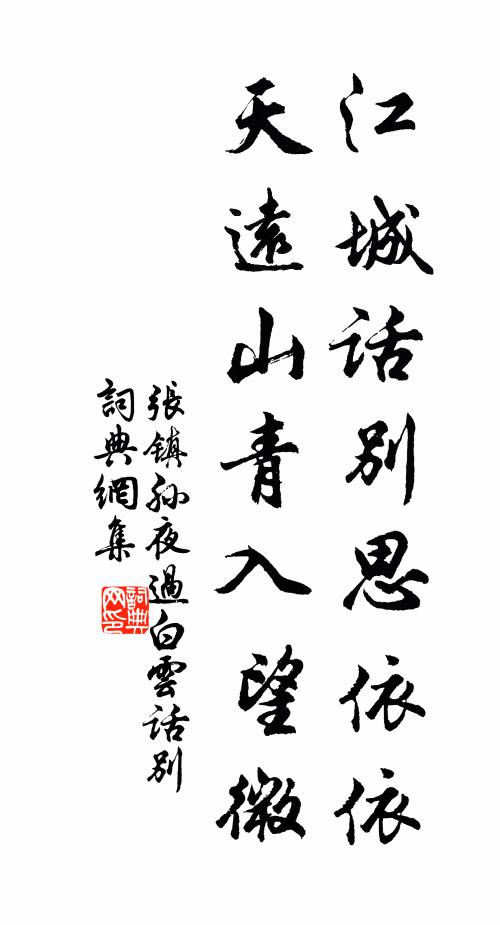 江城話別思依依
天遠山青入望微
張鎮孙夜過白雲話別
詞典網集
詞典网印